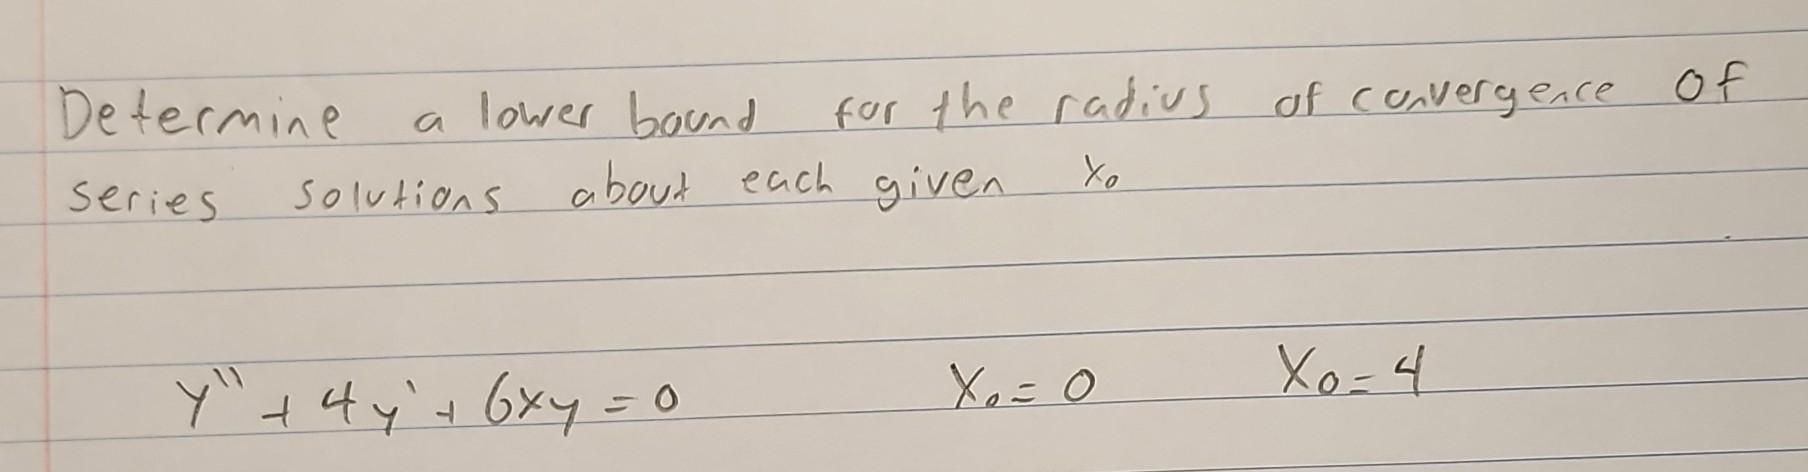 Determine a lower bound for the radius of convergence of
series solutions about each given x₀
y'' + 4y' + 6xy = 0 X₀ = 0 X₀ = 4